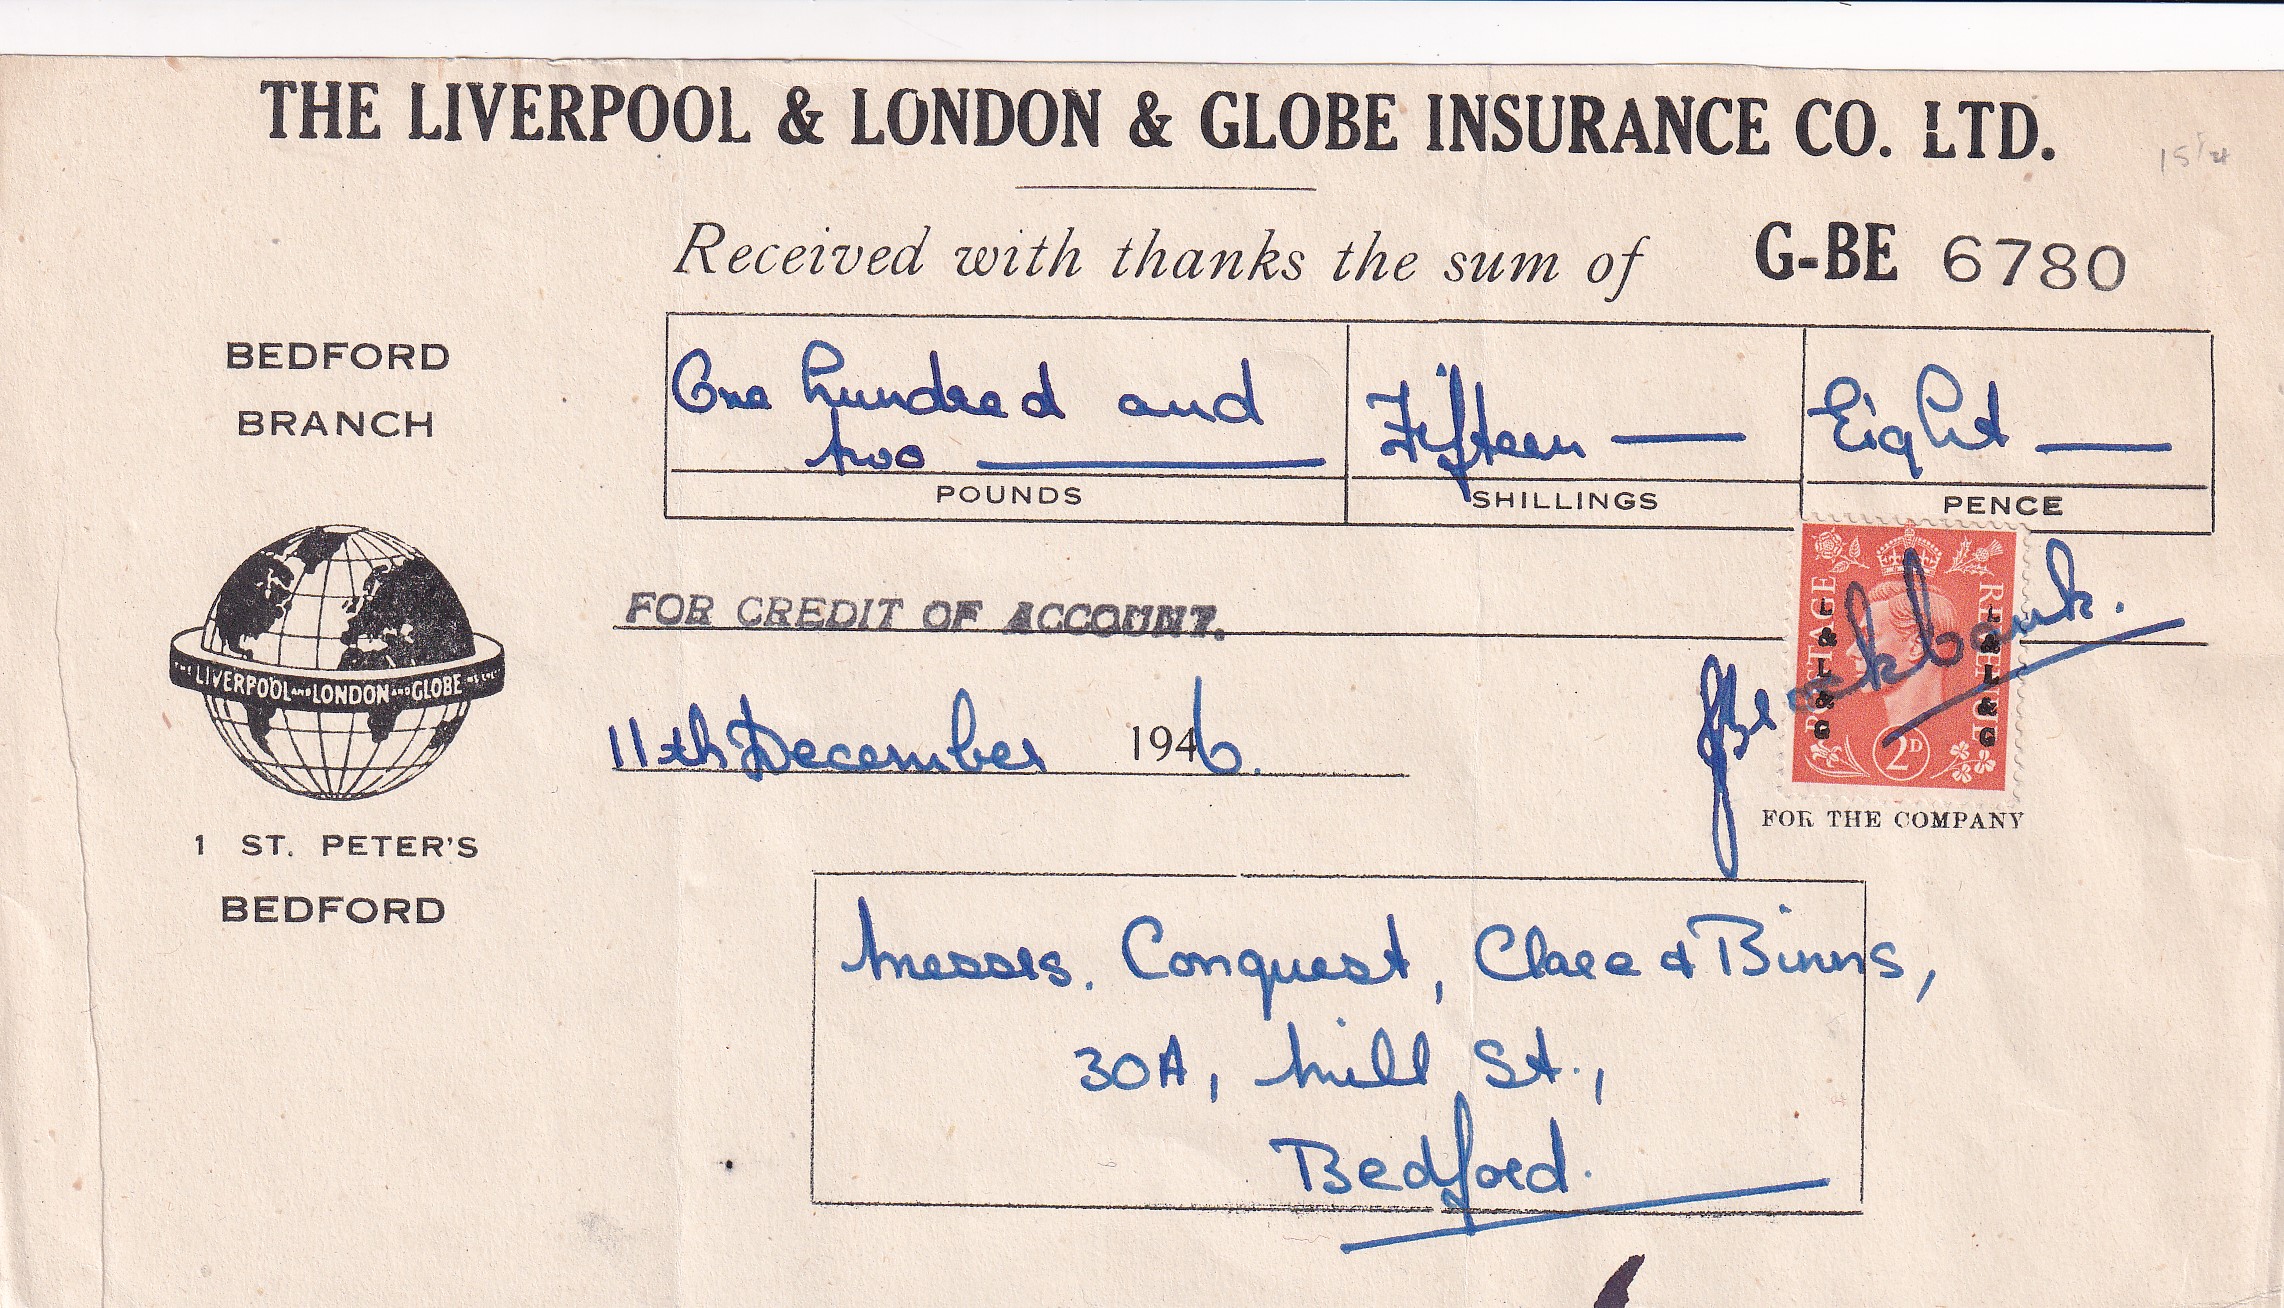 THE LIVERPOOL & LONDON & GLOBE INSURANCE CO. LTD.
15/4
Received with thanks the sum of G-BE 6780
BEDFORD
BRANCH
One hundred and
two
POUNDS
Fifteen
SHILLINGS
Eight
PENCE
FOR CREDIT OF ACCOUNT.
LIVERPOOL AND LONDON AND GLOBE
11th December 1946.
POSTAGE
REVENUE
L&L&G
L&L&G
2D
FOR THE COMPANY
1 ST. PETER'S
BEDFORD
Messrs. Conquest, Clare & Binns,
30A, Mill St.,
Bedford.